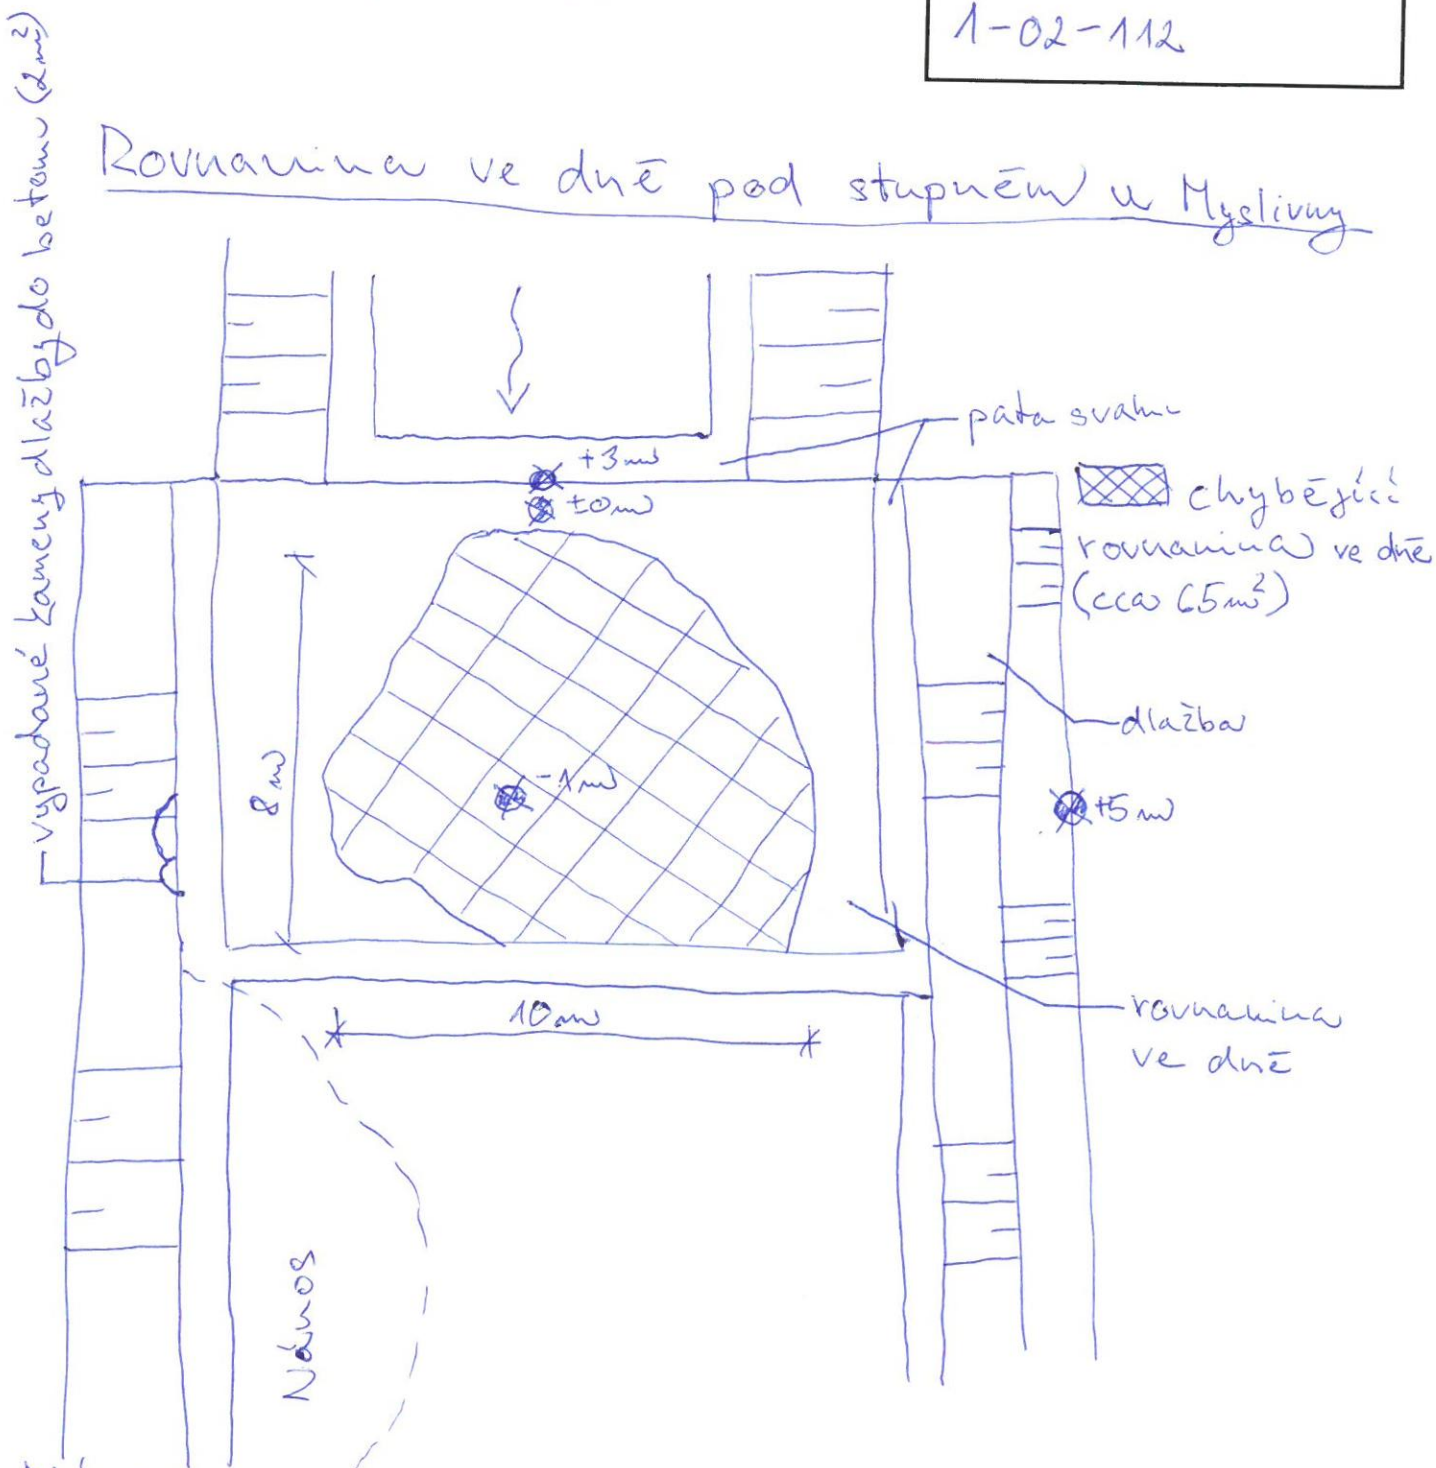 1-02-112
Rovnanina ve dně pod stupněm u Myslivny
vypadané kameny dlažby do betonu (2m²)
pata svahu
+3m
±0m
chybějící
rovnanina ve dně
(cca 65m²)
dlažba
8m
-1m
+5m
10m
rovnanina
ve dně
Nános